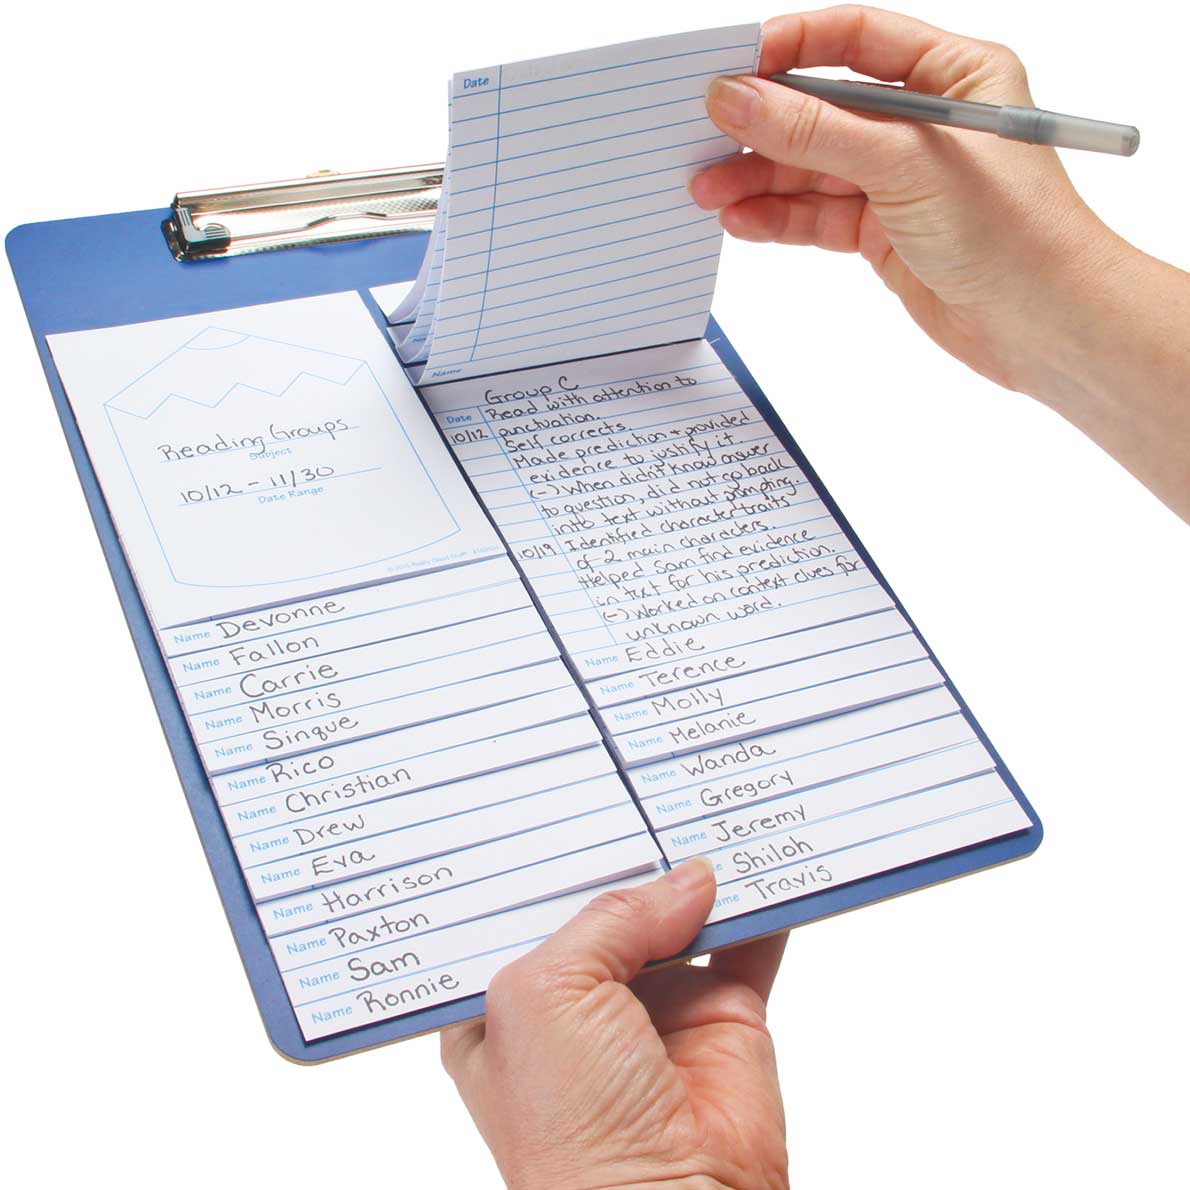 Date
Name
Reading Groups
Subject
10/12 - 11/30
Date Range
Name Devonne
Name Fallon
Name Carrie
Name Morris
Name Sinque
Name Rico
Name Christian
Name Drew
Name Eva
Name Harrison
Name Paxton
Name Sam
Name Ronnie
Group C
Date Read with attention to
10/12 punctuation.
Self corrects.
Made prediction + provided
evidence to justify it.
(-) When didn't know answer
to question, did not go back
into text without prompting.
10/19 Identified character traits
of 2 main characters.
Helped Sam find evidence
in text for his prediction.
(-) Worked on context clues for
unknown word.
Name Eddie
Name Terence
Name Molly
Name Melanie
Name Wanda
Name Gregory
Name Jeremy
Shiloh
ame Travis